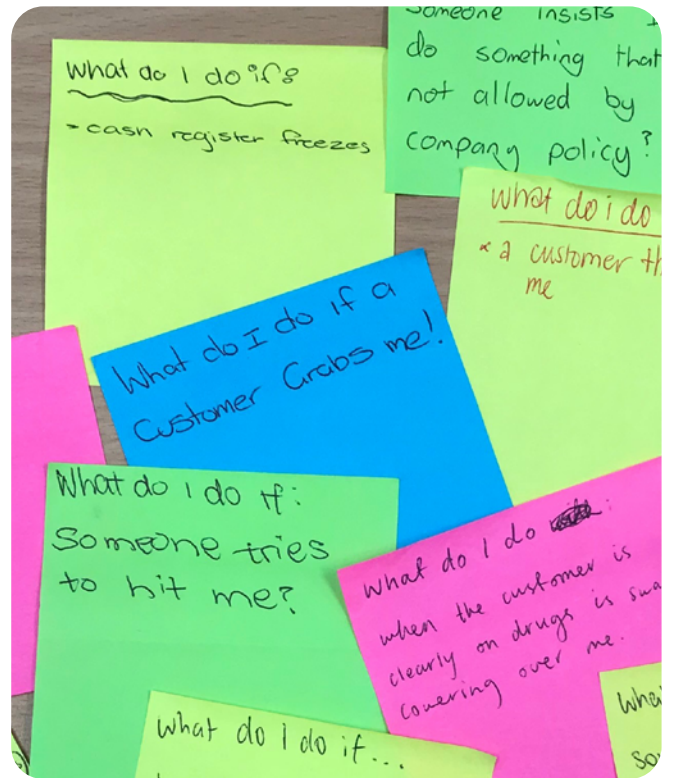 What do I do if:
- cash register freezes
Someone insists I
do something that
not allowed by
company policy?
What do i do
* a customer th
me
What do I do if a
Customer Grabs me!
What do I do if:
Someone tries
to hit me?
what do I do
when the customer is
clearly on drugs is swa
cowering over me.
what do I do if...
Wha
So